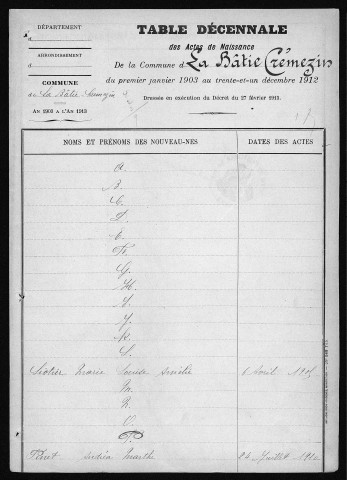 DÉPARTEMENT
TABLE DÉCENNALE
des Actes de Naissance
ARRONDISSEMENT
De la Commune d La Bâtie Crémezin
du premier janvier 1903 au trente-et-un décembre 1912
COMMUNE
de La Bâtie
Dressée en exécution du Décret du 17 février 1913.
AN 1903 A L'AN 1913
NOMS ET PRÉNOMS DES NOUVEAU-NÉS
DATES DES ACTES
A.
B.
C.
D.
E
F.
G.
H.
I.
J.
K.
L.
Marie 6 Avril
M.
N.
O.
P.
Marthe 24 Juillet